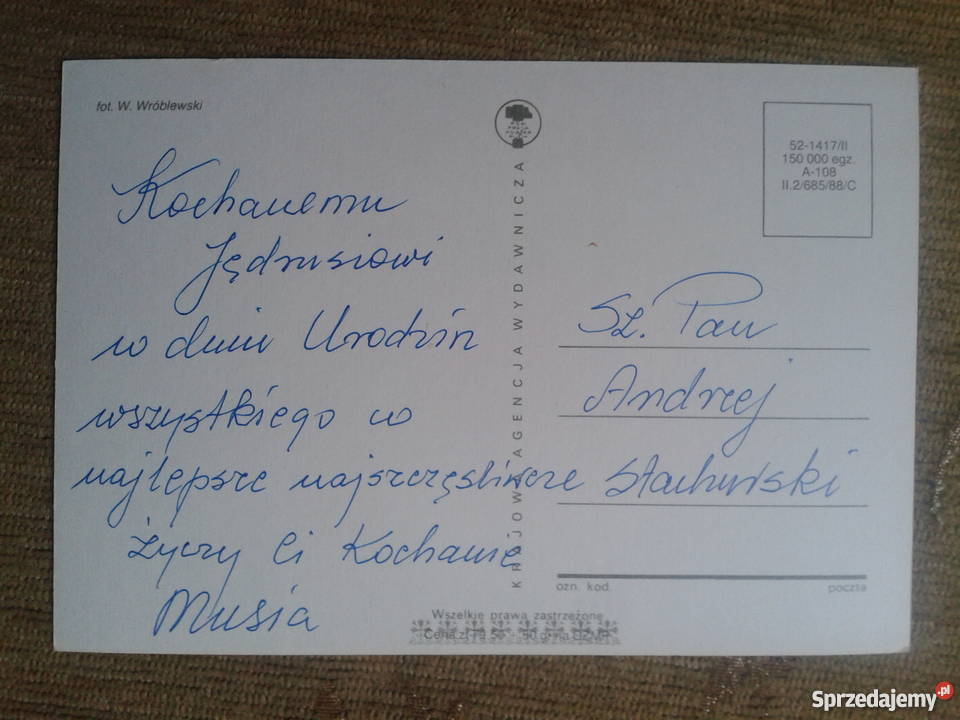 fot. W. Wróblewski
52-1417/II
150 000 egz.
A-108
II.2/685/88/C
KRAJOWA AGENCJA WYDAWNICZA
Kochanemu
Jędrusiowi
w dniu Urodzin
wszystkiego co
najlepsze najszczęśliwsze
życzy Ci Kochane
Musia
Sz. Pan
Andrzej
Stachurski
ozn. kod.
poczta
Wszelkie prawa zastrzeżone
Cena zł
Sprzedajemy.pl